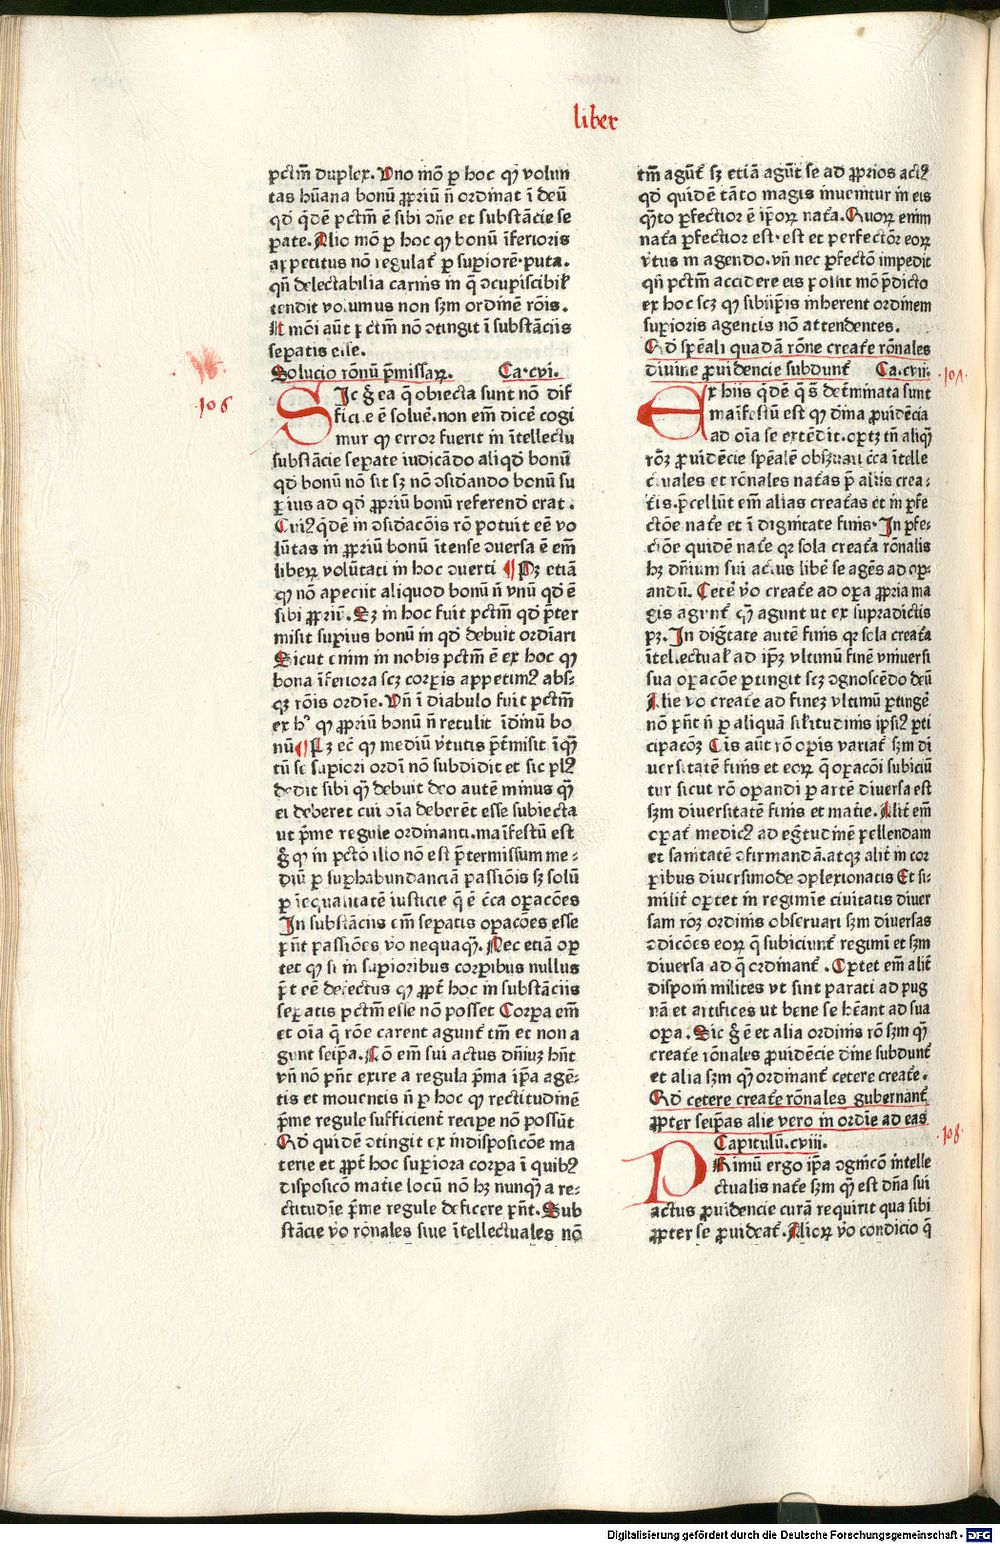 liber
pctm̄ duplex. Uno mō ꝑ hoc ꝙ volun
tas hūana bonū ꝓpriū n̄ ordinat ī deū
qd̄ qͥdē pctm̄ ē sibi ↄ̄ne et substācie se
ꝑate. Alio mō ꝑ hoc ꝙ bonū īferioris
appetitus nō regulat̄ ꝑ superiorē. puta.
qn̄ delectabilia carnis in q̄ ↄcupiscibił
tendit volumus non scḋm ordinē rōis.
Hͦ mōi aūt pctm̄ nō ↄtingit ī substāciis
seꝑatis esse.
Solucio rōnū p̄missaꝝ. Ca.cvi.
.106
SIc g̊ ea q̄ obiecta sunt nō dif
ficile ē soluē. non em̄ dicē cogi
mur ꝙ error fuerit in ītellectu
substācie seꝑate iudicādo aliqd̄ bonū
qd̄ bonū nō sit sꝫ nō ↄsidando bonū su
ꝑius ad qd̄ ꝓpriū bonū referend̄ erat.
Cuiꝰ qͥdē in ↄsidacōis rō potuit eē vo
lūtas in ꝓpriū bonū ītense ↄuersa ē em̄
liberꝝ volūtati in hoc ↄuerti ¶ Pꝫ etiā
ꝙ nō apeciit aliquod bonū n̄ vnū qd̄ ē
sibi ꝓpriū. Sꝫ in hoc fuit pctm̄ qd̄ p̄ter
misit superius bonū in qd̄ debuit ordīari
Sicut enim in nobis pctm̄ ē ex hoc ꝙ
bona īferiora scꝫ corꝑis appetimꝰ absꝫ
qꝫ rōis ordīe. Un̄ ī diabulo fuit pctm̄
ex hͦ ꝙ ꝓpriū bonū n̄ retulit īdīnū bo
nū ¶ Pꝫ ecͥ ꝙ mediū v̄tutis p̄t̄misit īqͣ
tū se supiori ordī nō subdidit et sic plꝰ
dedit sibi qͣ debuit deo autē minus qͣ
ei deberet cui oīa deberēt esse subiecta
ut p̄me regule ordinanti. maīfestū est
g̊ ꝙ in pctō illo nō est p̄termissum me⸗
diū ꝑ supͬhabundanciā passiōis sꝫ solū
ꝑ īequalitatē iusticie q̄ ē cͥca oꝑacōes
In substāciis em̄ seꝑatis oꝑacōes esse
pn̄t passiōes vō nequaqͣ. Nec etiā opͬ
tet ꝙ si in supioribus corꝑibus nullus
p̄t eē defectus ꝙ ꝓpt̄ hoc in substāciis
seꝑatis pctm̄ esse nō posset Corꝑa em̄
et oīa q̄ rōe carent agunt̄ tm̄ et non a
gunt seip̄a. Rō em̄ sui actus dn̄iuꝫ hn̄t
vn̄ nō pn̄t exire a regula p̄ma ip̄a agē⸗
tis et mouentis n̄ ꝑ hoc ꝙ rectitudinē
p̄me regule sufficient̄ recipe nō possūt
Qd̄ quidē ↄtingit ex indisposicōe ma
terie et ꝓpt̄ hoc superiora corꝑa ī quibꝰ
disposicō matīe locū nō hꝫ nunqͣ a re⸗
ctitudīe p̄me regule deficere pn̄t. Sub
stācie vō rōnales siue ītellectuales nō
tm̄ agūt̄ sꝫ etiā agūt se ad ꝓprios actꝰ
qd̄ quidē tāto magis inuenitur in eis
qͣto ꝑfectior ē ip̄oꝝ nat̄a. Quoꝝ enim
nat̄a ꝑfectior est. est et perfectōr eoꝝ
v̄tus in agendo. vn̄ nec ꝑfectō impedit
qn̄ pctm̄ accidere eis possit mō p̄dicto
ex hoc scꝫ ꝙ sibiip̄is inherent ordinem
superioris agentis nō attendentes.
Qd̄ sp̄eali quadā rōne creat̄e rōnales
diuine ꝓuidencie subdunt̄ Ca.cvii.
.107.
EX hiis qͥdē qͥ s̄ det̄minata sunt
maīfestū est ꝙ dīna ꝓuidēcia
ad oīa se extēdit. oꝑtꝫ tn̄ aliqͣ
rōꝫ ꝓuidēcie sp̄ealē obsꝫuari cͥca ītelle
ctuales et rōnales nat̄as p̄ aliis crea⸗
t̄is. p̄cellūt em̄ alias creat̄as et in ꝑfe
ctōe nat̄e et ī dignitate finis. In ꝑfe⸗
ctōe quidē nat̄e qꝛ sola creat̄a rōnalis
hꝫ dn̄ium sui actus libē se agēs ad oꝑ⸗
andū. Cet̄e vō creat̄e ad oꝑa ꝓpria ma
gis agunt̄ qͣ agunt ut ex supradictis
pꝫ. In dig̃tate autē finis qꝛ sola creat̄a
ītellectual̄ ad ip̄ꝫ vltimū finē vniuersi
sua oꝑacōe ꝑtingit scꝫ ↄgnoscēdo deū
Alie vō creat̄e ad fineꝫ vltimū ꝑtingē
nō pn̄t n̄ ꝑ aliquā sil̄itudinis ipsiꝰ ꝑti
cipacōꝫ Cis aūt rō oꝑis variat̄ scḋm di
uersitatē finis et eoꝝ q̄ oꝑacōi subiciū
tur sicut rō oꝑandi ꝑ artē diuersa est
scḋm diuersitatē finis et matīe. Alit̄ em̄
oꝑat̄ medicꝰ ad eg̃tudinē ꝑellendam
et sanitatē ↄfirmandā. atqꝫ alit̄ in cor
ꝑibus diuersimode ↄplexionatis Et si⸗
milit̄ oꝑtet in regimīe ciuitatis diuer
sam rōꝫ ordinis obseruari scḋm diuersas
ↄdicōes eoꝝ q̄ subiciunt̄ regimī et scḋm
diuersa ad q̄ ordinant̄. Oꝑtet em̄ alit̄
disponi milites vt sint parati ad pug
nā et artifices ut bene se hēant ad sua
oꝑa. Sic g̊ ē et alia ordinis rō scḋm qͣ
creat̄e rōnales ꝓuidēcie dīne subdunt̄
et alia scḋm qͣ ordinant̄ cetere creat̄e.
Qd̄ cetere creat̄e rōnales gubernant̄
ꝓpter seipsas alie vero in ordīe ad eas
Capitulū. cviii.
.108.
PRimū ergo ip̄a ↄgnicō intelle
ctualis nat̄e scḋm qͣ est dn̄a sui
actus ꝓuidencie curā requirit qua sibi
ꝓpter se ꝓuideat̄. Alioꝝ vō condicio q̄
Digitalisierung gefördert durch die Deutsche Forschungsgemeinschaft - DFG